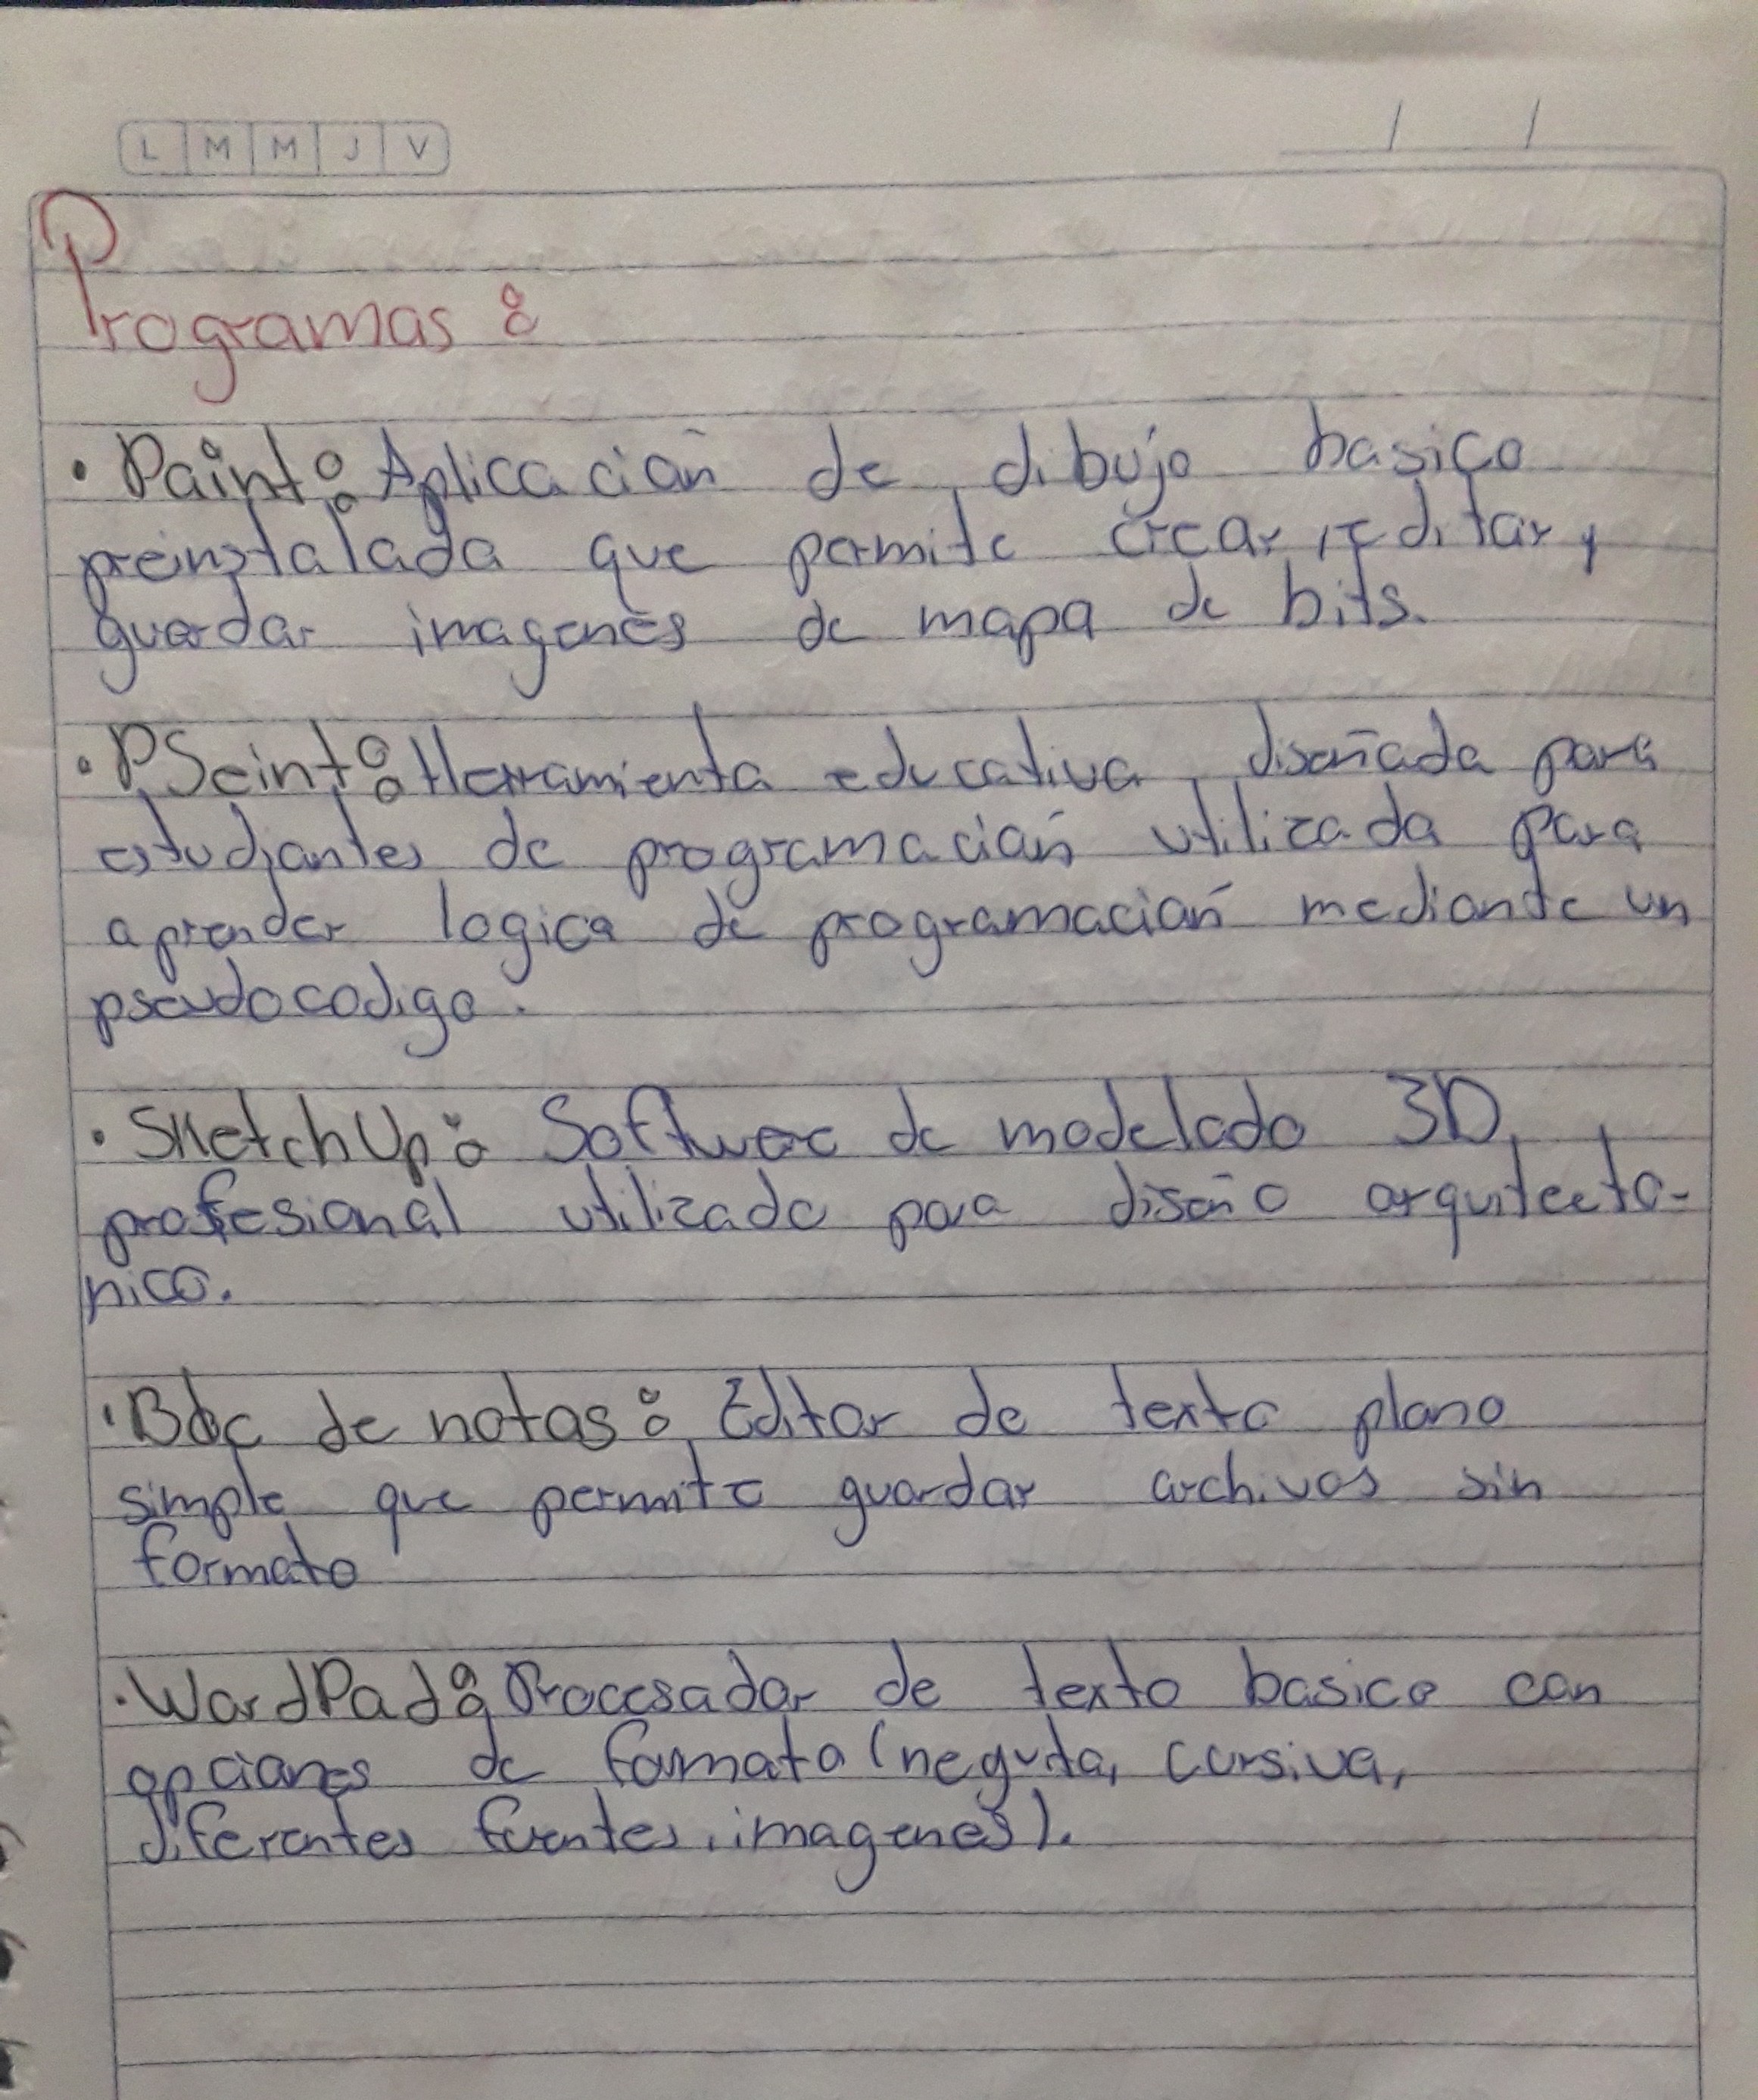 L M M J V
/ /
Programas:
• Paint: Aplicación de dibujo basico
preinstalada que permite crear, editar y
guardar imagenes de mapa de bits.
• PSeint: Herramienta educativa diseñada para
estudiantes de programación utilizada para
aprender logica de programación mediante un
pseudocodigo.
• SketchUp: Software de modelado 3D
profesional utilizado para diseño arquitecto-
nico.
• Bloc de notas: Editor de texto plano
simple que permite guardar archivos sin
formato
• WordPad: Procesador de texto basico con
opciones de formato (negrita, cursiva,
diferentes fuentes, imagenes).